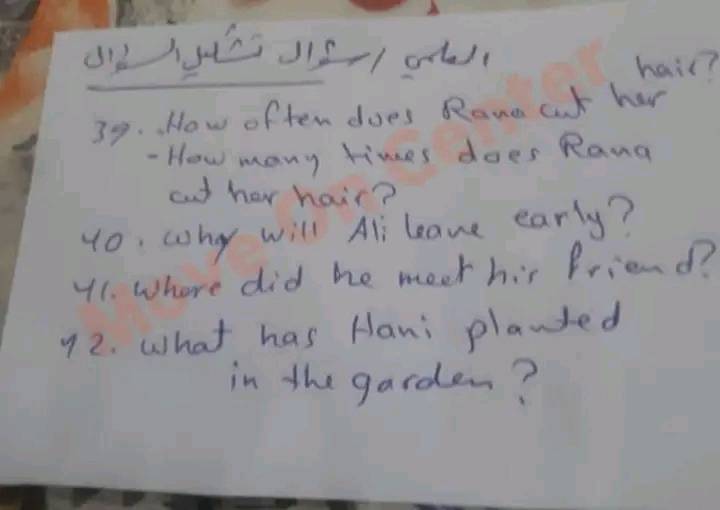 العلمي / سؤال تشكيل السؤال
39. How often does Rana cut her hair?
- How many times does Rana
cut her hair?
40. Why will Ali leave early?
41. Where did he meet his friend?
42. What has Hani planted
in the garden?
Move On Center